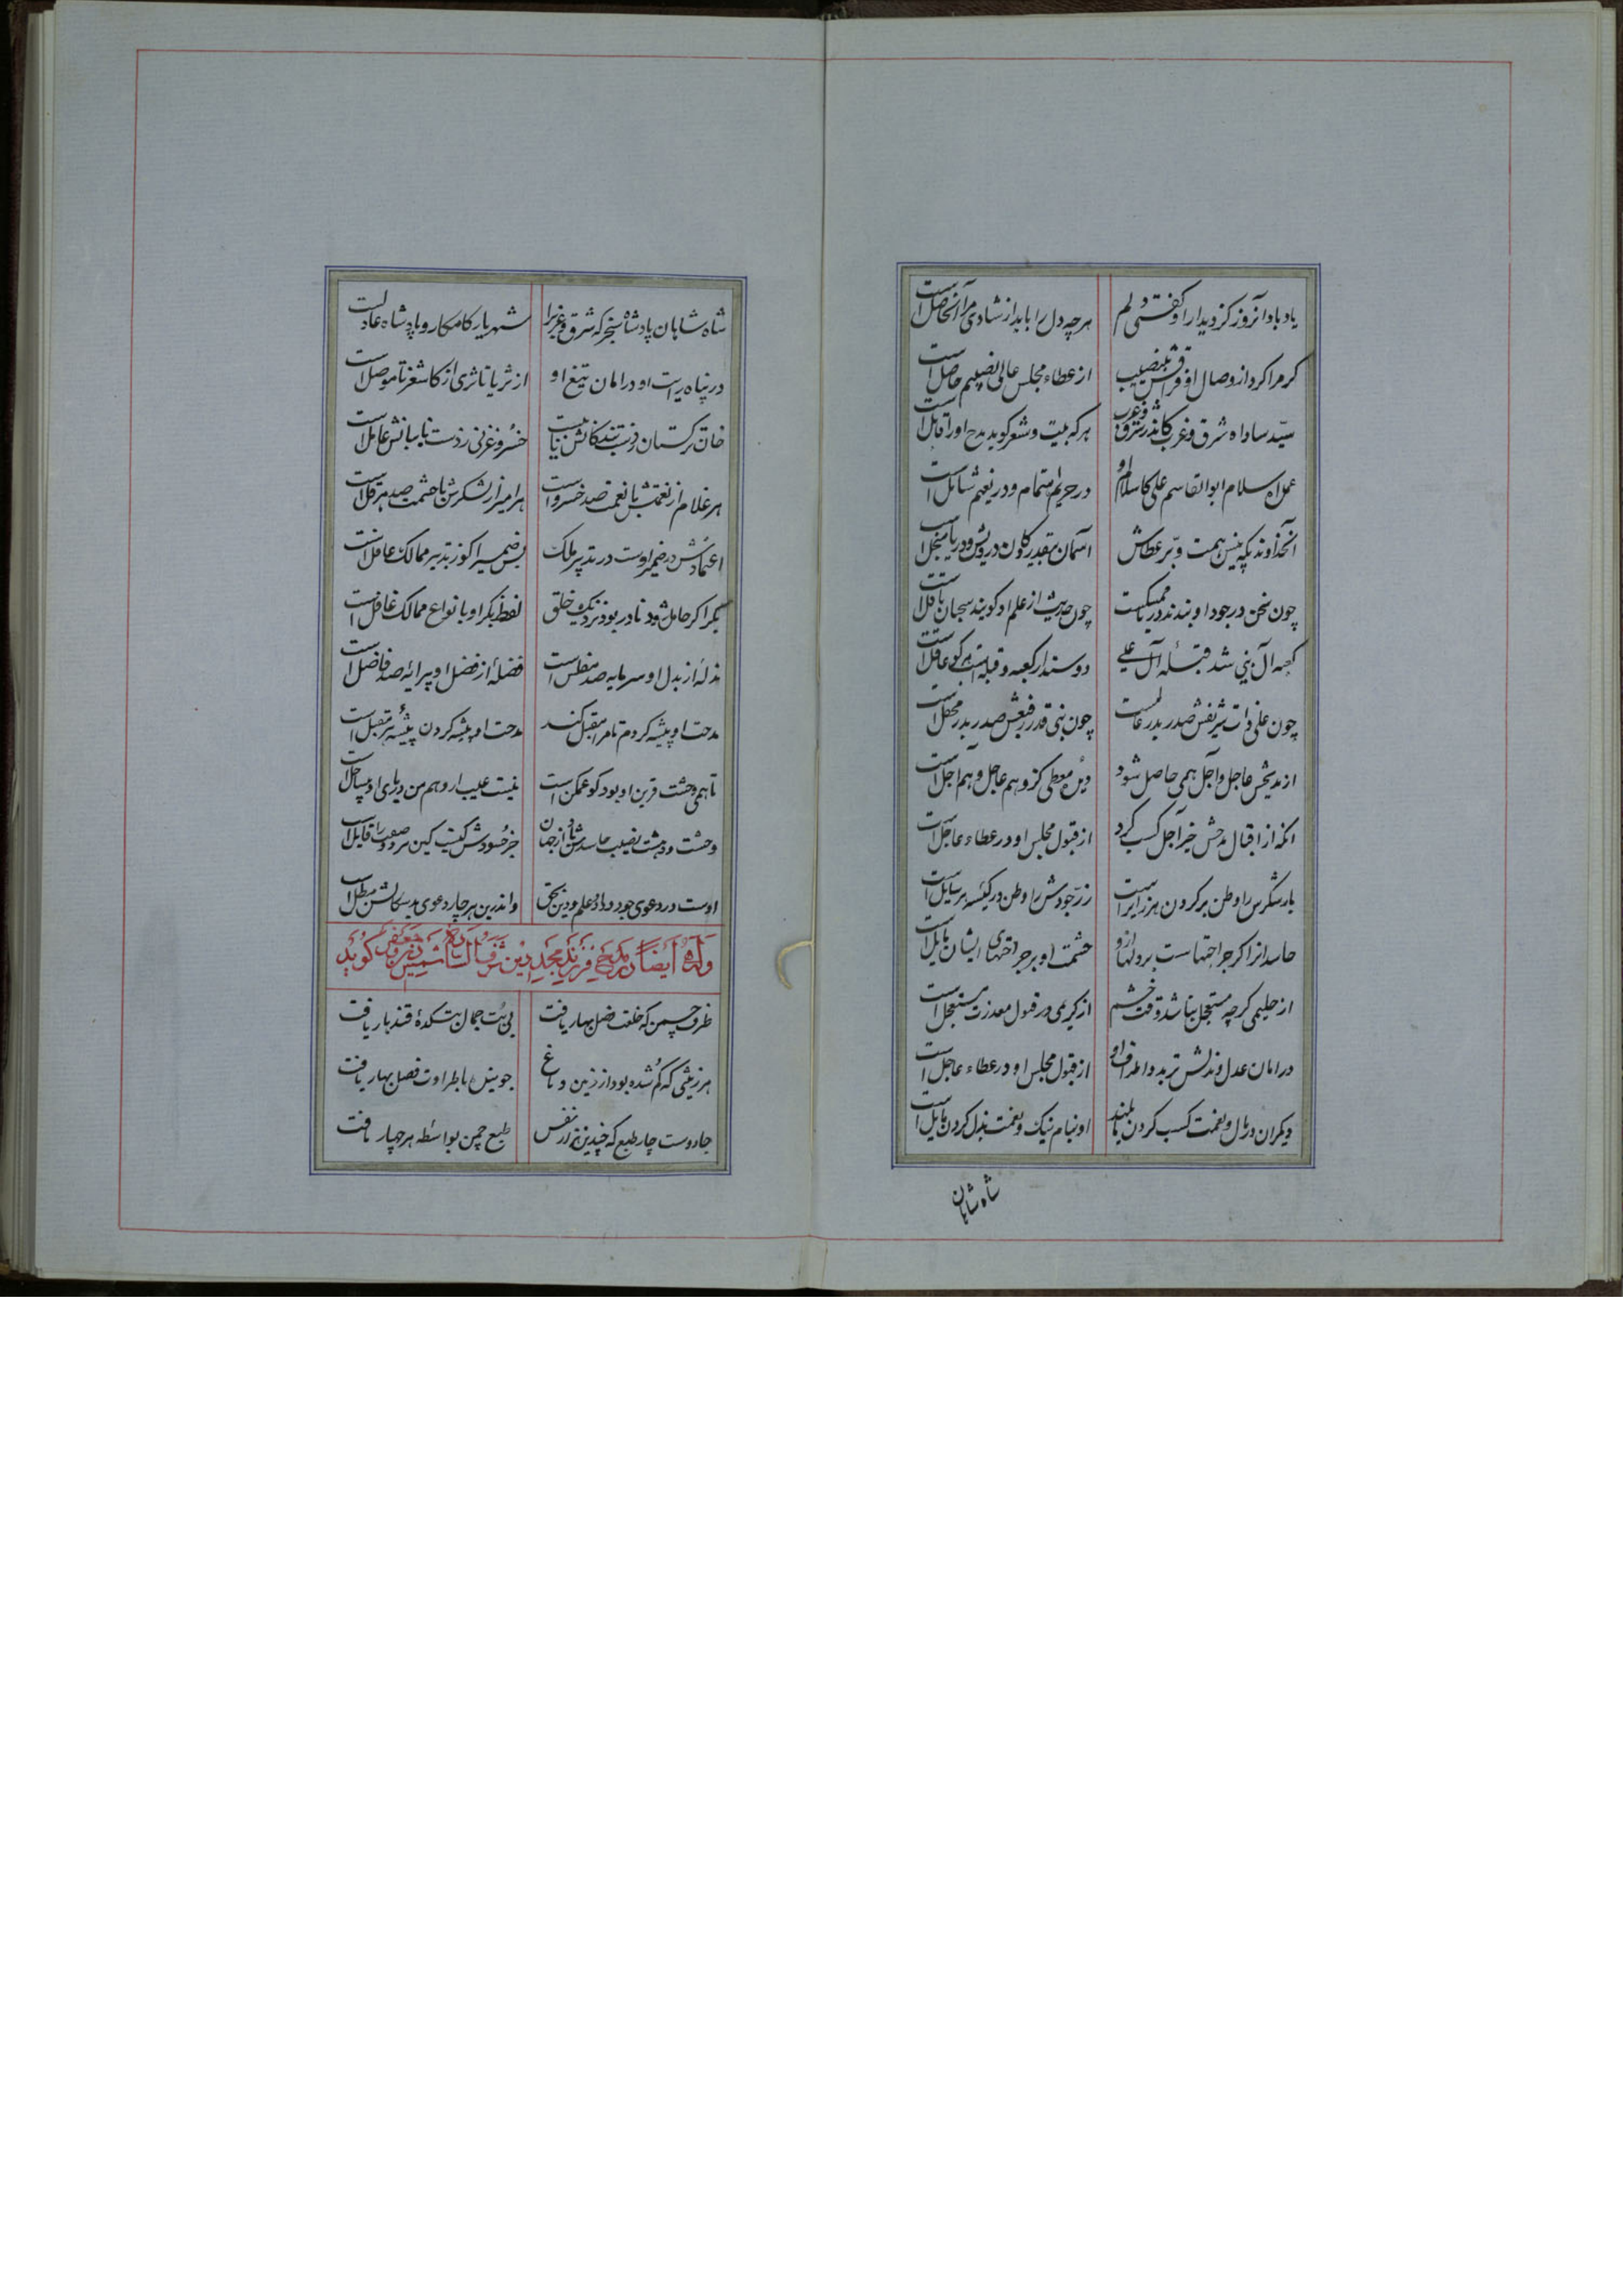 یاد باد آنروز کز دیدار او گفتی دلم هرچه دل را باید از شادی مرا آنحاصل است
گر مرا کرد از وصال او فراقش بی نصیب از عطاء مجلس عالی نصیبم حاصل است
سید سادات شرق و غرب کاندر شرق و غرب هر که بیت و شعر گوید بمدح او را قایل است
اسلام ابوالقاسم علی کاسلام او در حریم اهتمام و در نعیم شاملست
آنخداوندیکه پیش همت و بر عطاش آسمان بیقدر و کان درویش و دریا منجل است
چون سخن در جود او بندند دریا ممسکست چون حدیث از علم او گویند سحبان باقل است
کعبه آل نبی شد قبله آل علی دوستدار کعبه و قبله است هر کو عاقل است
چون علی ذات شریفش صدر بدر عالمست چون نبی قدر رفیعش صدر بدر محفل است
از مدیحش عاجل و آجل همی حاصل شود معطی کزو هم عاجل و هم آجل است
آنکه از اقبال مدحش خیر آجل کسب کرد از قبول مجلس او در عطاء عاجل است
بار شکرش را وطن بر گردن هر زایر است زر جودش را وطن در کیسه هر سایل است
حاسدانرا گر جراحتهاست بر دلها ازو حشمت او بر جراحتهای ایشان مایل است
از حلیمی گرچه مستعجل نباشد وقت خشم از کریمی در قبول معذرت مستعجل است
در امان عدل و بذلش تربد و اطراف او از قبول مجلس او در عطاء عاجل است
دیگران در مال و نعمت کسب کردن مایلند او بنام نیک و نعمت بذل کردن مایل است
شاه شاهان
شاه شاهان پادشاه سنجر که شرق و غرب را شهریار کامکار و پادشاه عادلست
در پناه رایت او در امان تیغ او از ثریا تا ثری از کاشغر تا موصل است
خان ترکستان ز دست بندگانش نایب است خسرو غزنی ز دست نایبانش عامل است
هر غلام از نعمتش با نعمت صد خسرو است هر امیر از لشکرش با حشمت صد هرقل است
اعتمادش در ضمیر اوست در تدبیر ملک پس ضمیر کوز تدبیر ممالک غافل است
بکر اگر حامل شود نادر بود نزدیک خلق لفظ بکر او بانواع ممالک غافل است
بذلهٔ از بذل او سرمایه صد مفلس است فضلهٔ از فضل او پیرایه صد فاضل است
مدحت او پیشه کردم تا مرا مقبل کند مدحت او پیشه کردن پیشهٔ هر مقبل است
تا همی وحشت قرین او بود کو غمگن است نیست عیب ار وهم من دریای او بیساحل است
وحشت و دهشت نصیب حاسدش باد از جهان جز حسودش کیست کین هر دو صفت را قابل است
اوست در دعوی جود و داد و علم و دین بحق واندرین هر چار دعوی بدسگالش مبطل است
وله ایضاً در مدح فرزند مجدالدین شرف السادة شمس الدین جعفر گوید
طرف چمن که خلعت فصل بهار یافت بی بت جمال بتکدهٔ قندهار یافت
هر زینتی که گم شده بود از زمین و باغ جویش باطراوت فصل بهار یافت
جادوست چار طبع که چندین هزار نفس طبع چمن بواسطه هر چهار یافت